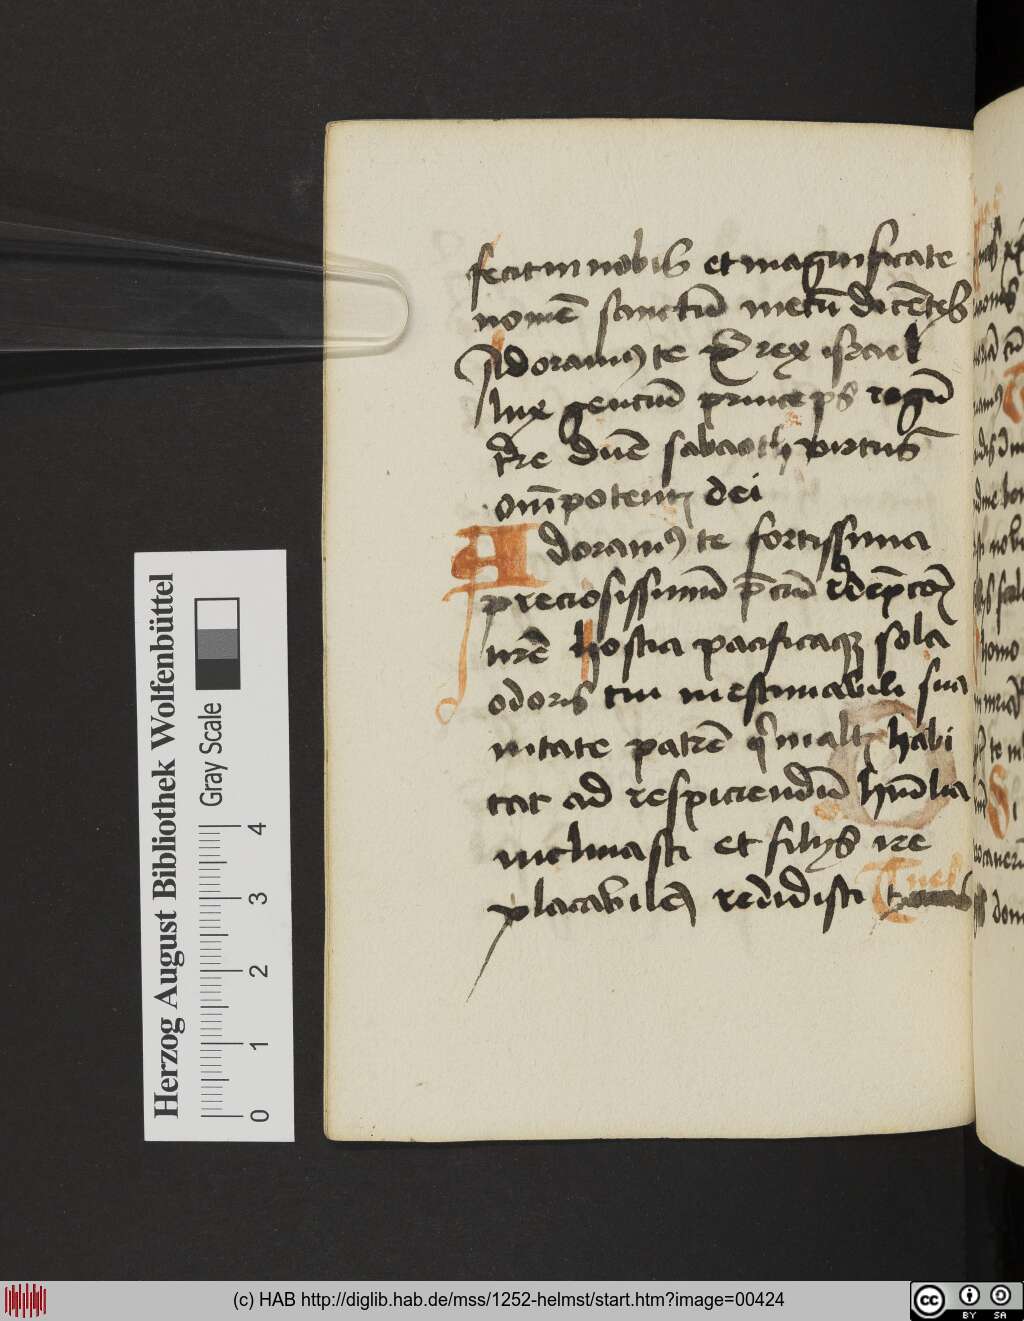 fecit in nobis et magnificate
nomē sanctū mecū dicētes
Adoramus te xpē rex israel
lux gentiū princeps regū
tre dnē sabaoth virtus
omīpotens dei
Adoramus te fortissima
preciosissimū p̄ciū redēpcōis
nrē hostia pacificaque sola
odoris tui inestimabili sua
uitate patrē qui in altis habi
tat ad respiciendū hūilia
inclinasti et filijs ire
placabilem reddidisti
Herzog August Bibliothek Wolfenbüttel
Gray Scale
0 1 2 3 4
(c) HAB http://diglib.hab.de/mss/1252-helmst/start.htm?image=00424
cc BY SA